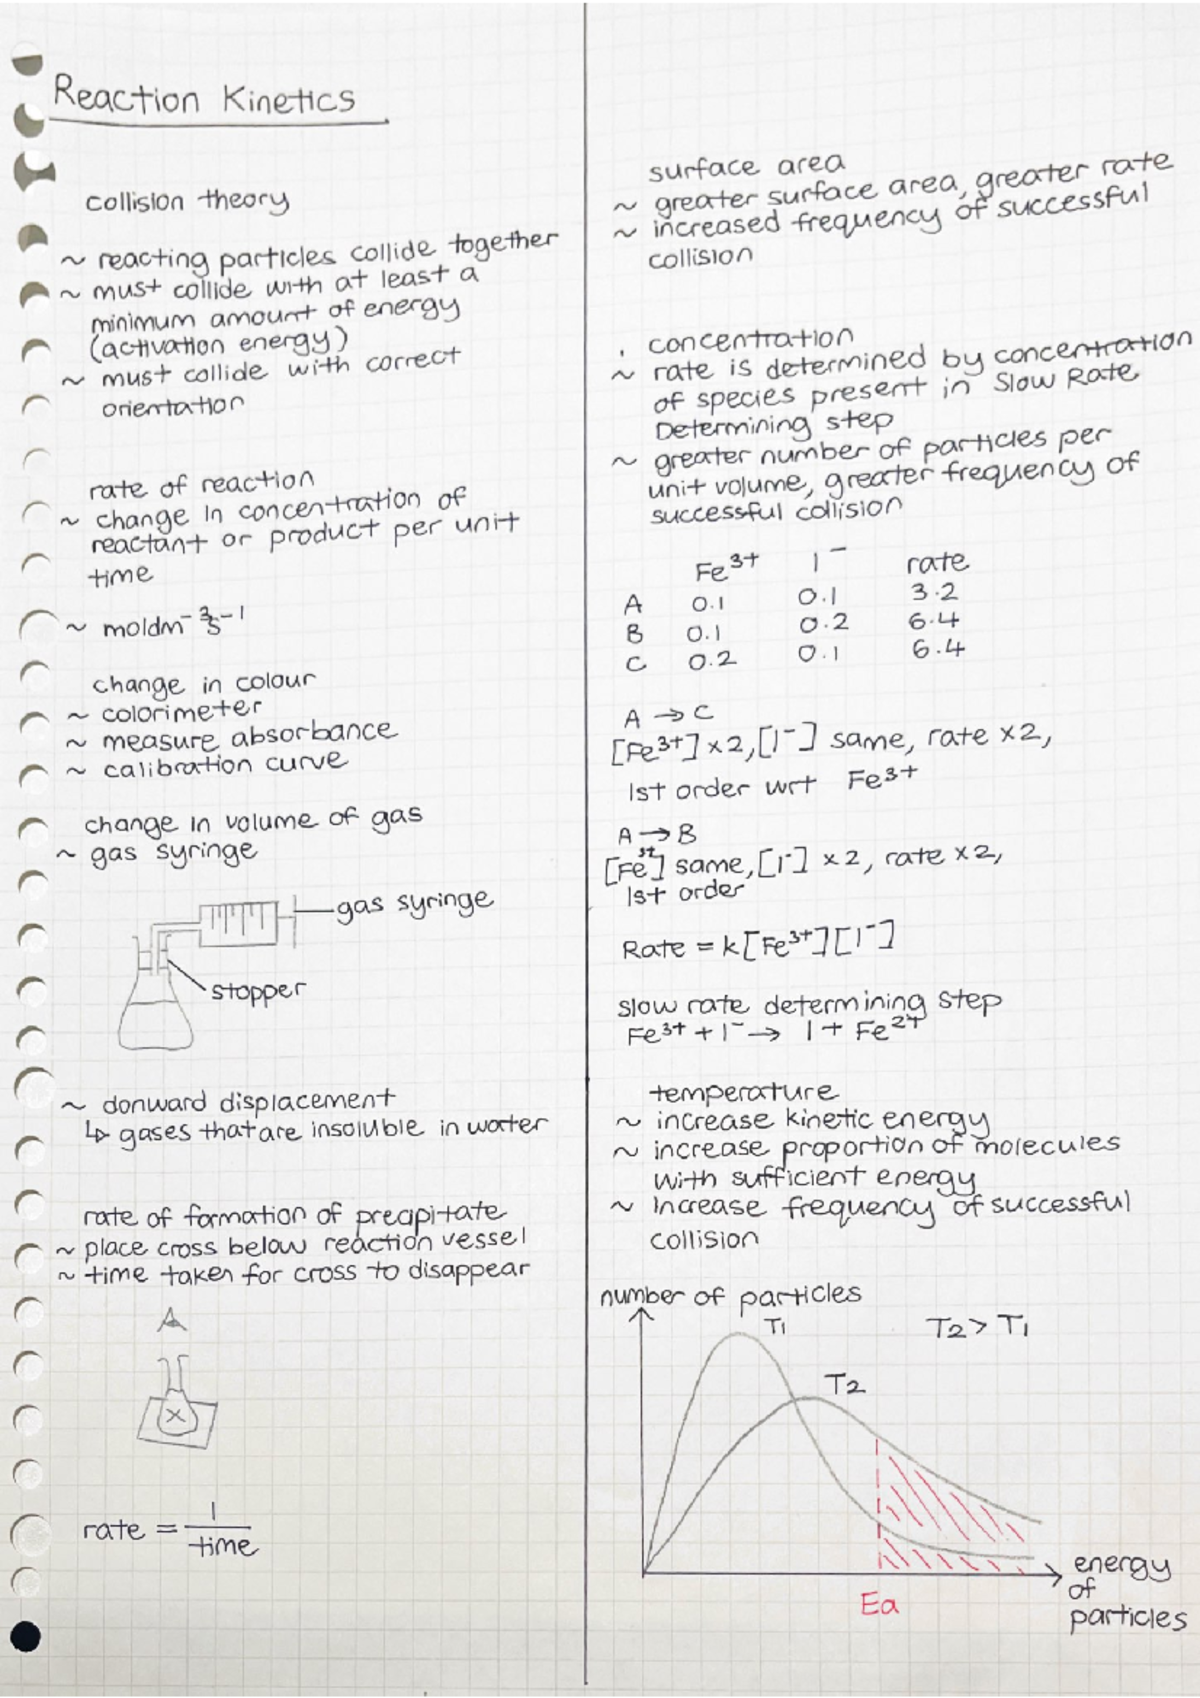 Reaction Kinetics
collision theory
~ reacting particles collide together
~ must collide with at least a
minimum amount of energy
(activation energy)
~ must collide with correct
orientation
rate of reaction
~ change in concentration of
reactant or product per unit
time
~ moldm⁻³s⁻¹
change in colour
~ colorimeter
~ measure absorbance
~ calibration curve
change in volume of gas
~ gas syringe
gas syringe
stopper
~ donward displacement
↳ gases that are insoluble in water
rate of formation of precipitate
~ place cross below reaction vessel
~ time taken for cross to disappear
X
rate = 1/time
surface area
~ greater surface area, greater rate
~ increased frequency of successful
collision
concentration
~ rate is determined by concentration
of species present in Slow Rate
Determining step
~ greater number of particles per
unit volume, greater frequency of
successful collision
Fe³⁺ I⁻ rate
A 0.1 0.1 3.2
B 0.1 0.2 6.4
C 0.2 0.1 6.4
A → C
[Fe³⁺] ×2, [I⁻] same, rate ×2,
1st order wrt Fe³⁺
A → B
[Fe³⁺] same, [I⁻] ×2, rate ×2,
1st order
Rate = k[Fe³⁺][I⁻]
slow rate determining step
Fe³⁺ + I⁻ → I + Fe²⁺
temperature
~ increase kinetic energy
~ increase proportion of molecules
with sufficient energy
~ Increase frequency of successful
collision
number of particles
T1
T2 > T1
T2
Ea
energy
of
particles